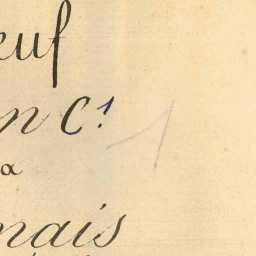 euf
n C.¹
a
nais